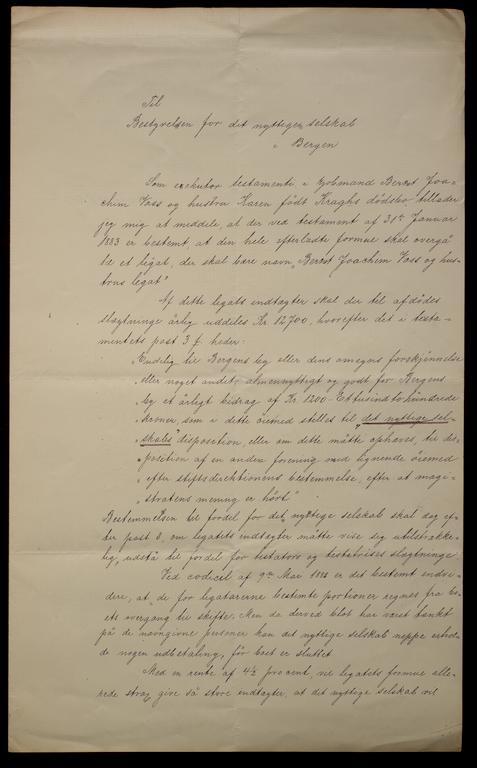 Til
Bestyrelsen for det nyttige selskab
i Bergen
Som exekutor testamenti i kjøbmand Berent Joa-
chim Voss og hustru Karen født Kraghs dødsbo tillader
jeg mig at meddele, at der ved testament af 31te Januar
1883 er bestemt, at den hele efterladte formue skal overgå
til et legat, der skal bære navn "Berent Joachim Voss og hus-
trus legat"
Af dette legats indtægter skal der til afdødes
slægtninge årlig uddeles Kr. 12700, hvorefter det i testa-
mentets post 3 f. heder:
"Endelig til Bergens by eller dens omegns forskjønnelse
"eller noget andet almennyttigt og godt for Bergens
"by et årligt bidrag af Kr. 1200 - Ettusindtohundrede
"kroner, som i dette øiemed stilles til "det nyttige sel-
"skabs" disposition, eller om dette måtte ophæves, til dis-
"position af en anden forening med lignende øiemed
"efter stiftsdirektionens bestemmelse, efter at magi-
"stratens mening er hørt"
Bestemmelsen til fordel for det nyttige selskab skal dog ef-
ter post 8, om legatets indtægter måtte vise sig utilstrække-
lig, udstå til fordel for testators og testatrises slægtninge
Ved codicil af 9de Mai 188 er det bestemt endvi-
dere, at "de for legatarerne bestemte portioner regnes fra bo-
ets overgang til skifte. Men da derved blot har været tænkt
på de navngivne personer kan det nyttige selskab neppe erhol-
de nogen udbetaling, før boet er sluttet
Med en rente af 4½ procent, vil legatets formue alle-
rede strax give så store indtægter, at det nyttige selskab vil